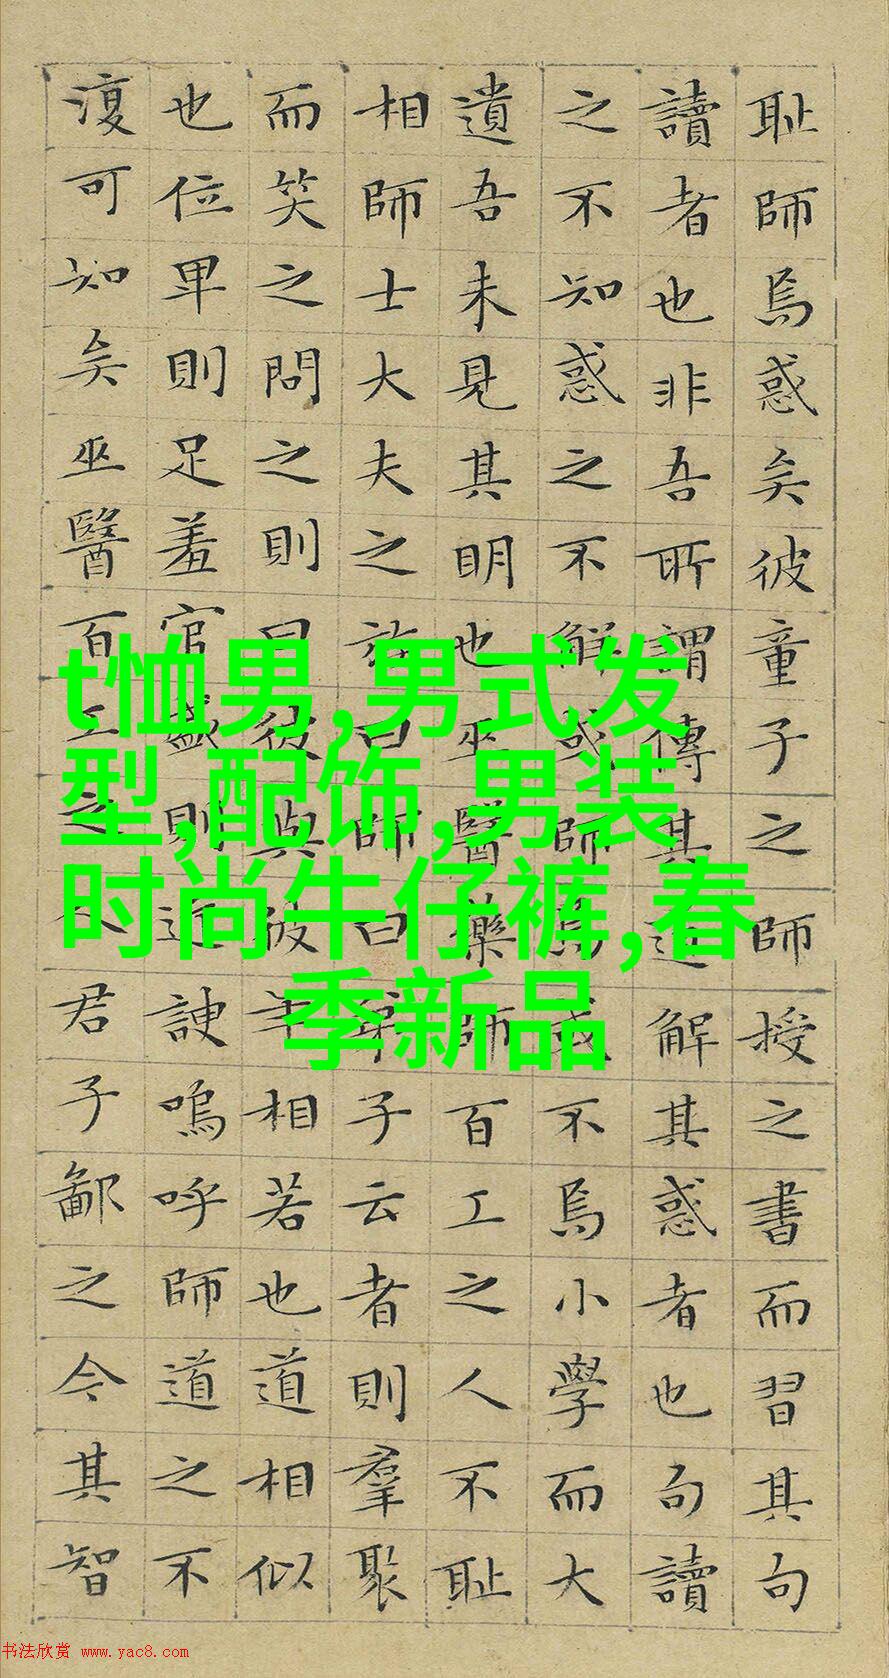 耻師焉惑矣彼童子之師授之書而習其句
讀者也非吾所謂傳其道解其惑者也句讀
之不知惑之不解或師焉或不焉小學而大
遺吾未見其明也巫醫藥師百工之人不耻
相師士大夫之族曰師曰弟子云者則羣聚
而笑之問之則曰彼與彼年相若也道相似
也位卑則足羞官盛則近諛嗚呼師道之不
復可知矣巫醫百工之人君子鄙之今其智
t恤男,男式发
型,配饰,男装
时尚牛仔裤,春
季新品
书法欣赏 www.yac8.com